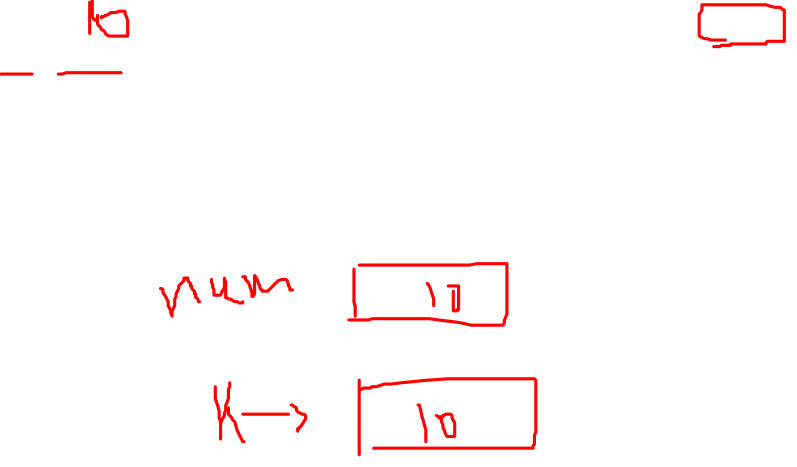 10
num 10
K → 10